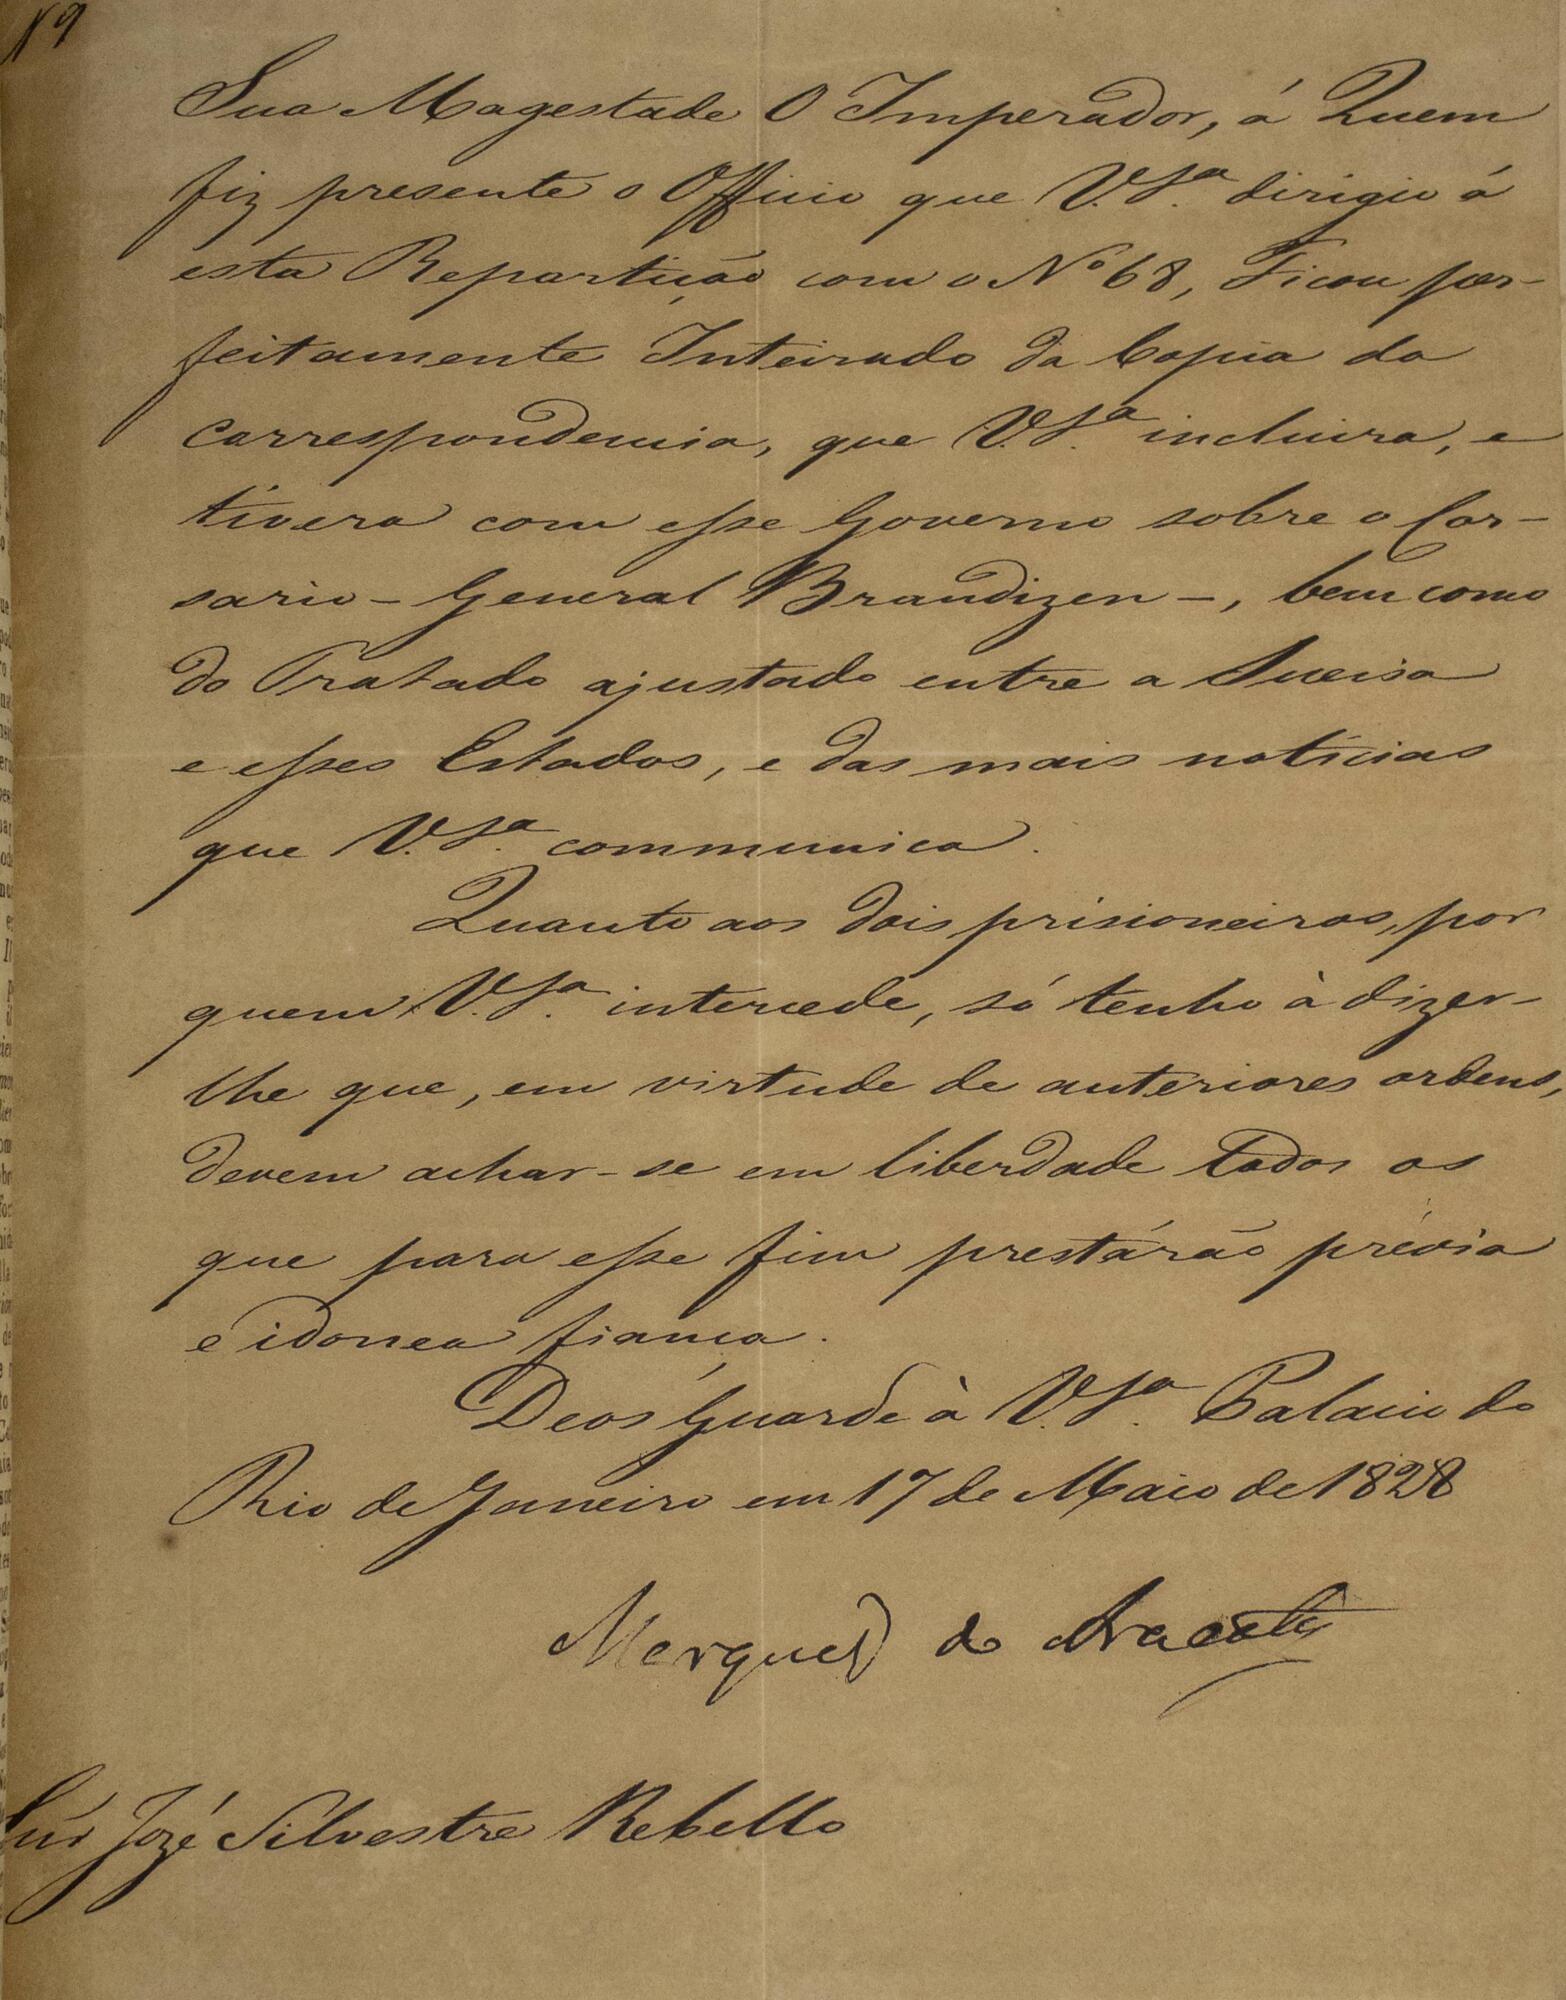 Nº 9
Sua Magestade O Imperador, á Quem
fiz presente o Officio que V.Sª. dirigio á
esta Repartição com o Nº 68, Ficou per-
feitamente Inteirado da Copia da
correspondencia, que V.Sª. incluira, e
tivera com esse Governo sobre o Cor-
sario - General Brandizen -, bem como
do Tratado ajustado entre a Sueisa
e esses Estados, e das mais noticias
que V.Sª. communica.
Quanto aos dois prisioneiros, por
quem V.Sª. intercede, só tenho à dizer-
lhe que, em virtude de anteriores ordens,
devem achar-se em liberdade todos os
que para esse fim prestárão prévia
e idonea fiança.
Deos Guarde à V.Sª. Palacio do
Rio de Janeiro em 17 de Maio de 1828
Marquez do Aracaty
Snr José Silvestre Rebello